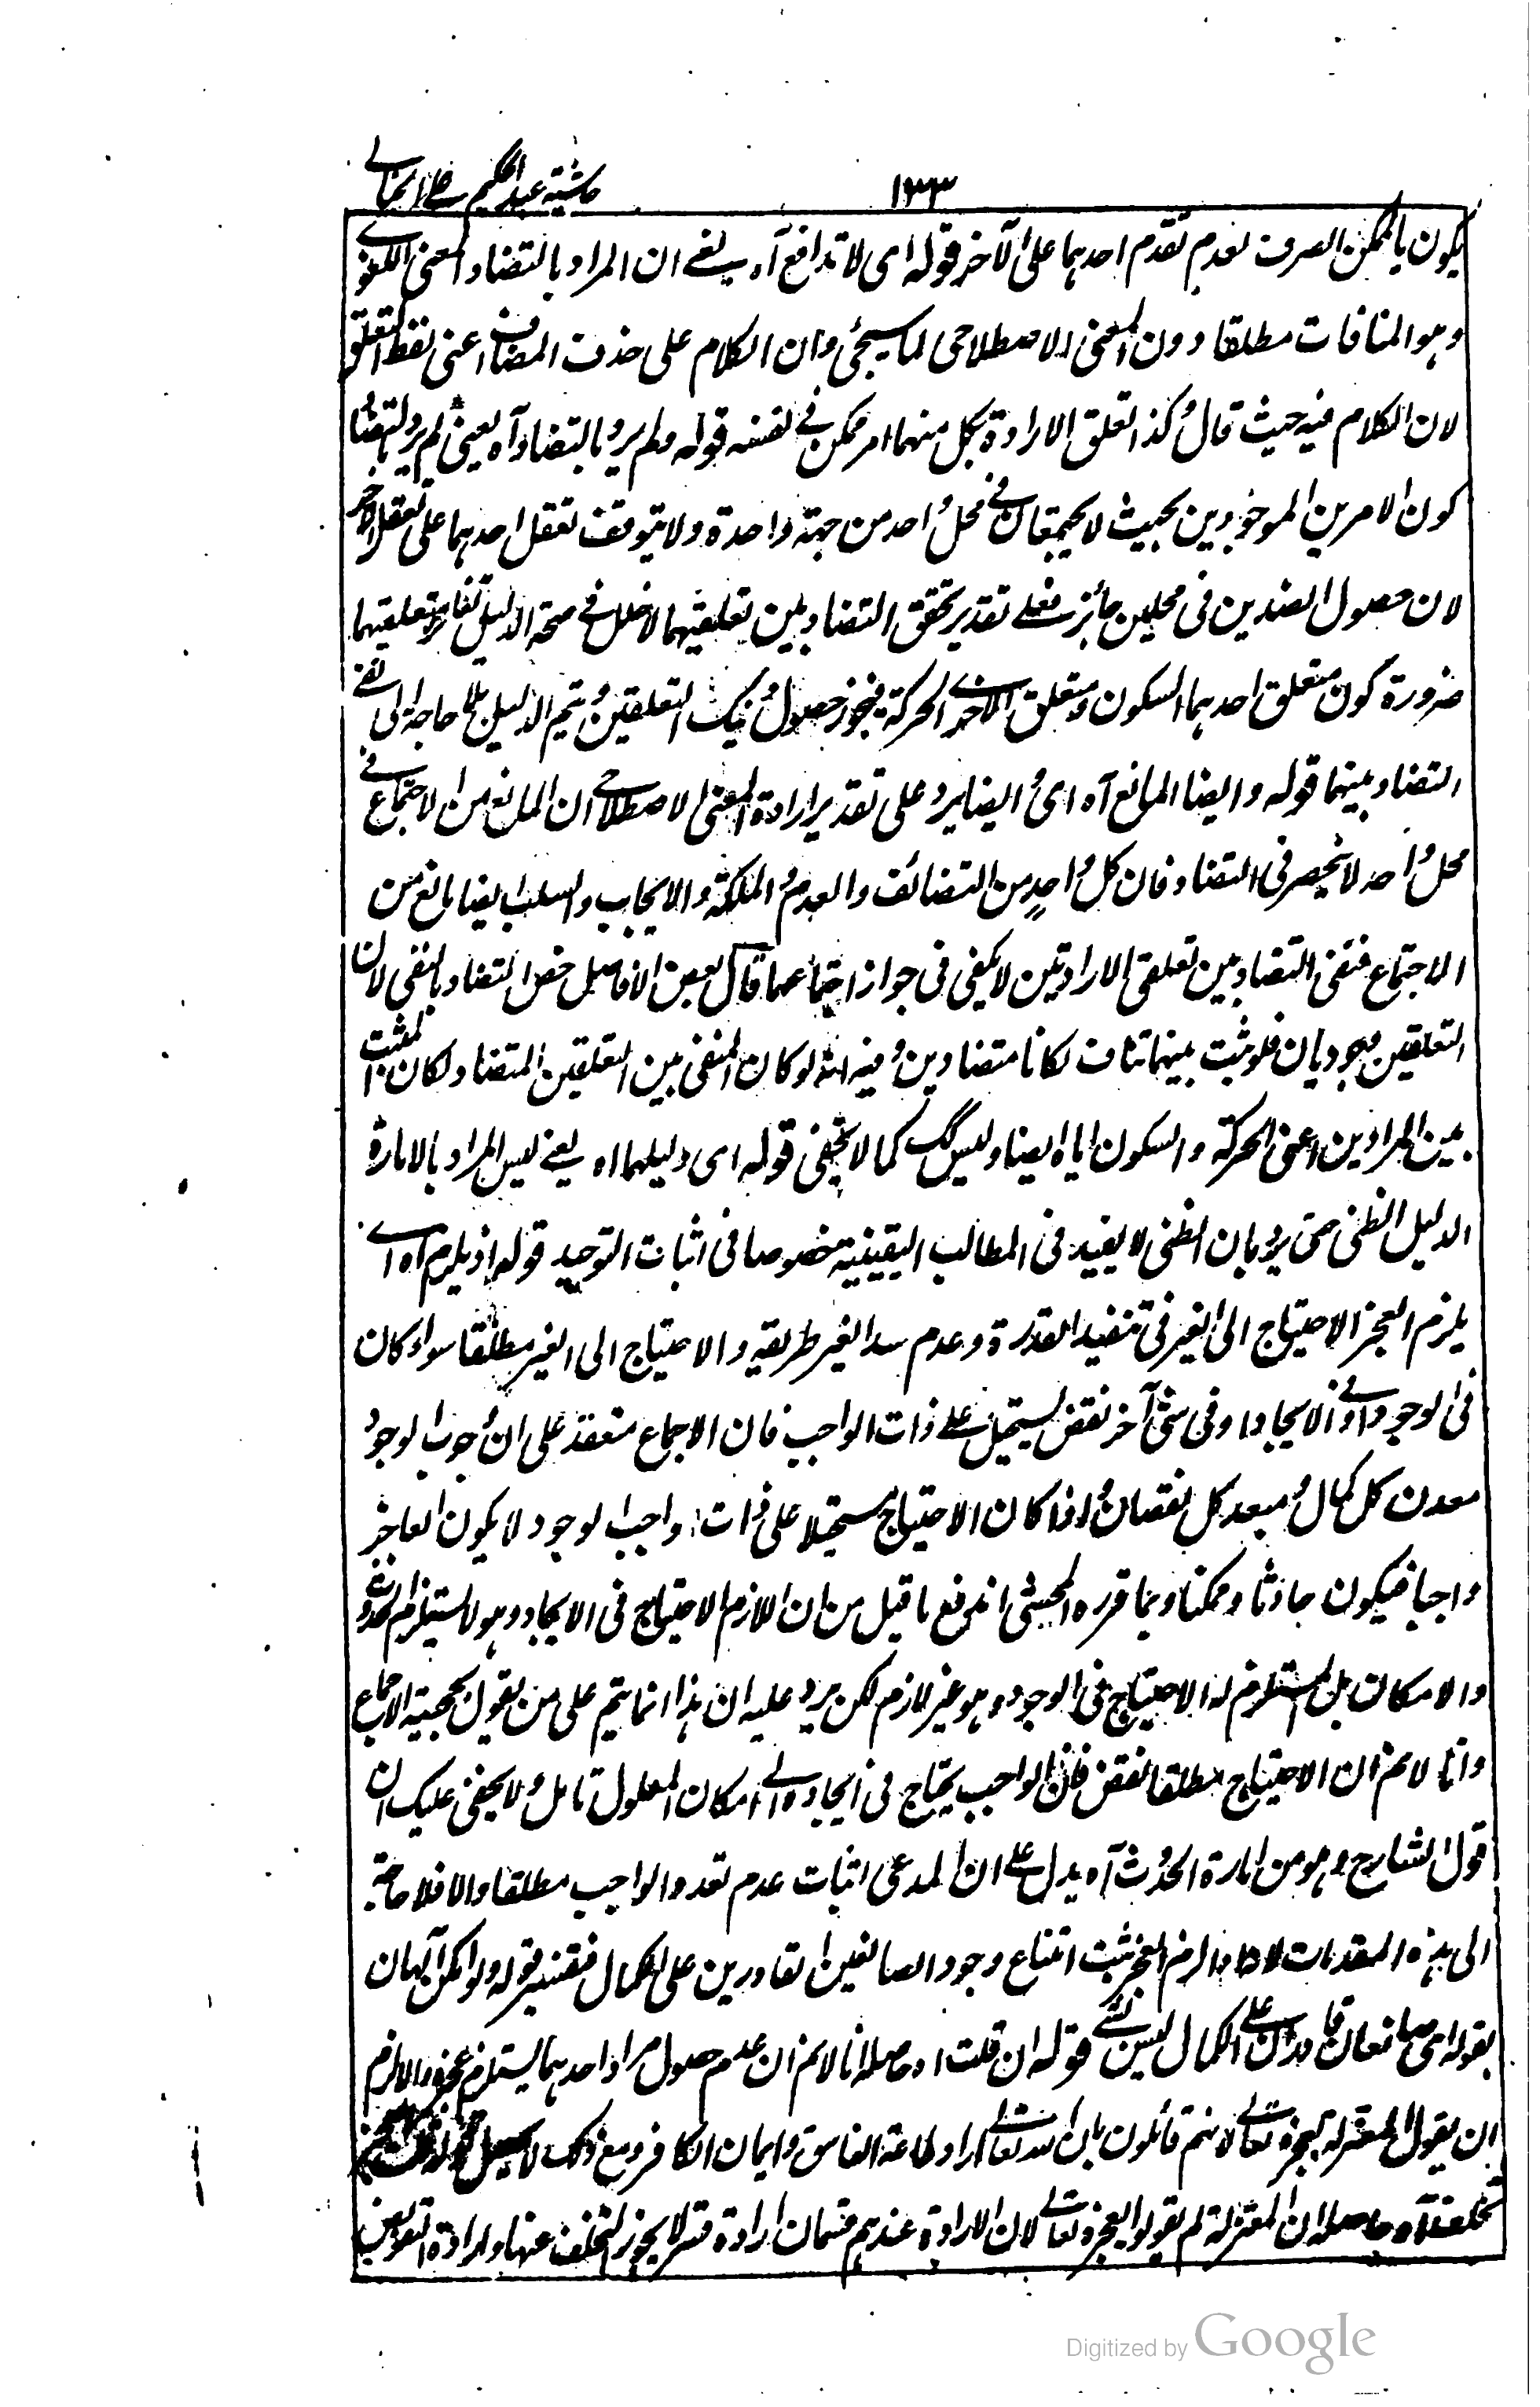 حاشیة عبد الحکیم علی الخیالے
۱۳۳
یکون بالممکن الصرف لعدم تقدم احدہما علی الآخر قولہ ای لا تدافع آہ یعنے ان المراد بالتضاد المعنی اللغوے
وہو المنافات مطلقا دون المعنی الاصطلاحی لما سیجئ وان الکلام علی حذف المضاف اعنی لفظ التعلق
لان الکلام فیہ حیث قال کذا تعلق الارادة بکل منہما امر ممکن فے نفسہ قولہ ولم یرد بالتضاد آہ یعنی لم یرد بالتضاد
کون الامرین الموجودین بحیث لا یجتمعان فے محل واحد من جہة واحدة ولا یتوقف تعقل احدہما علی تعقل الآخر
لان حصول الضدین فی محلین جائز فعلے تقدیر تحقق التضاد بین تعلقیہما لا خلل فے صحة الدلیل لتغایر متعلقیہما
ضرورة کون متعلق احدہما السکون ومتعلق الآخر الحرکة فیجوز حصول ذینک التعلقین ویتم الدلیل بلا حاجة الی نفے
التضاد بینہما قولہ وایضا المانع آہ ای وایضا یرد علی تقدیر ارادة المعنی الاصطلاحے ان المانع من الاجتماع فے
محل واحد لا ینحصر فی التضاد فان کل واحد من التضائف والعدم والملکة والایجاب والسلب ایضا مانع من
الاجتماع فنفی التضاد بین تعلقی الارادتین لا یکفی فی جواز اجتماعہما قال بعض الافاضل خص التضاد بالنفی لان
التعلقین وجودیان فلو ثبت بینہما تناف لکانا متضادین وفیہ انہ لو کان المنفی بین التعلقین المتضاد لکان المثبت
بین المرادین اعنی الحرکة والسکون ایاہ ایضا ولیس کک کما لا یخفی قولہ ای دلیلہما اہ یعنے لیس المراد بالامارة
الدلیل الظنی حتی یرد بان الظنی لا یفید فی المطالب الیقینیة خصوصا فی اثبات التوحید قولہ اذ یلزم آہ اے
یلزم العجز الاحتیاج الی الغیر فی تنفیذ القدرة وعدم سد الغیر طریقہ والاحتیاج الی الغیر مطلقا سواء کان
فی الوجود او فے الایجاد او فی شئ آخر نقص یستحیل علے ذات الواجب فان الاجماع منعقد علی ان وجوب الوجود
معدن کل کمال ومبعد کل نقصان واذا کان الاحتیاج مستحیلا علی ذات واجب الوجود لا یکون العاجز
واجبا فیکون حادثا وممکنا وبما قررہ المحشی اندفع ما قیل من ان اللازم الاحتیاج فی الایجاد وہو لا یستلزم الحدوث
والامکان بل المستلزم لہ الاحتیاج فی الوجود وہو غیر لازم لکن یرد علیہ ان ہذا انما یتم علی من یقول بحجیة الاجماع
وانا لا نم ان الاحتیاج مطلقا نقص فان الواجب یحتاج فی ایجادہ الے امکان المعلول تامل ولا یخفی علیک ان
قول الشارح وہو من امارة الحدوث آہ یدل علے ان المدعی اثبات عدم تعدد الواجب مطلقا والا فلا حاجة
الی ہذہ المقدمات لانہ اذا لزم العجز ثبت امتناع وجود الصانعین القادرین علی الکمال فتقیید قولہ ولو امکن آلہان
بقولہ ای صانعان قادران علے الکمال لیس بشے قولہ ان قلت اہ حاصلہ انا لا نم ان عدم حصول مراد احدہما یستلزم عجزہ والا لزم
ان یقول المعتزلة بعجزہ تعالے لانہم قائلون بان اللہ تعالے اراد طاعة الفاسق وایمان الکافر ومع ذلک لا یحصل
تخلف آہ حاصلہ ان المعتزلة لم یقولوا بعجزہ تعالے لان الارادة عندہم قسمان ارادة قسر لا یجوز التخلف عنہا وارادة التفویض
Digitized by Google